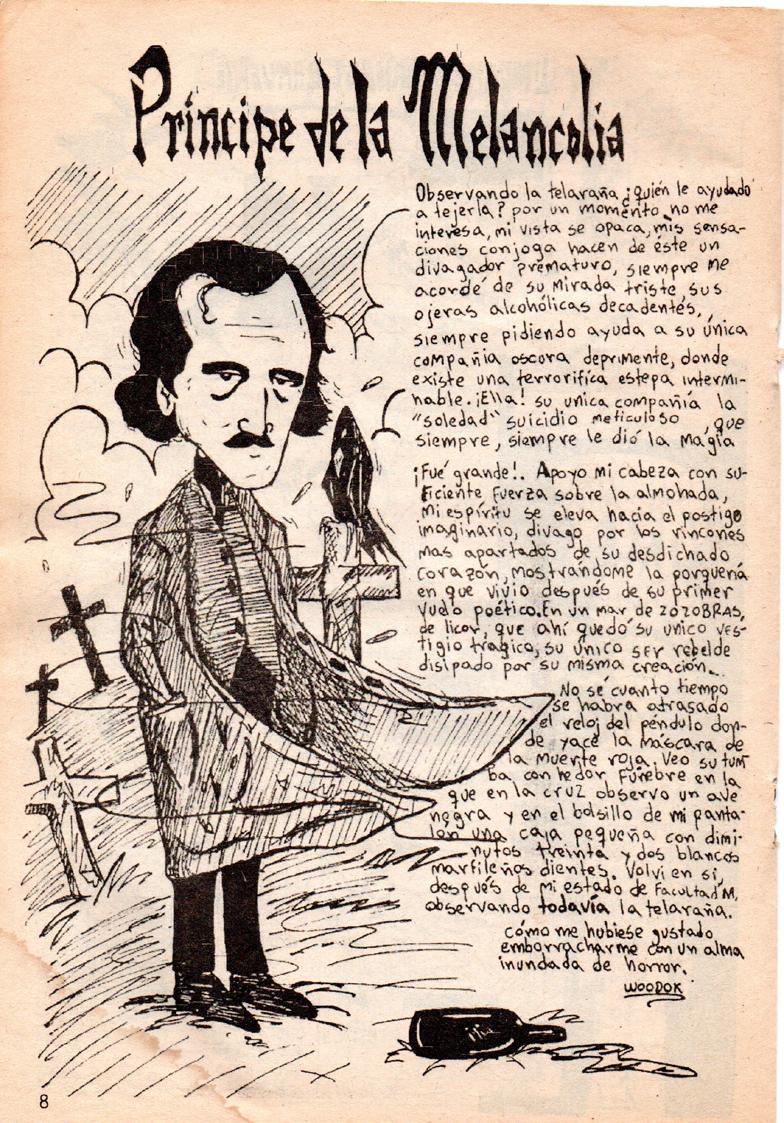 Príncipe de la Melancolia
Observando la telaraña ¿quién le ayudado
a tejerla? por un momento no me
interesa, mi vista se opaca, mis sensa-
ciones conjoga hacen de éste un
divagador prematuro, siempre me
acordé de su mirada triste sus
ojeras alcohólicas decadentés,
siempre pidiendo ayuda a su única
compañia oscura deprimente, donde
existe una terrorifica estepa intermi-
nable. ¡Ella! su unica compañía la
"soledad" suicidio meticuloso, que
siempre, siempre le dió la magia
¡Fué grande!. Apoyo mi cabeza con su-
ficiente fuerza sobre la almohada,
mi espíritu se eleva hacia el postigo
imaginario, divago por los rincones
mas apartados de su desdichado
corazón, mostrándome la porquería
en que vivio después de su primer
vuelo poético. En un mar de ZOZOBRAS,
de licor, que ahí quedó su unico ves-
tigio trágico, su único ser rebelde
disipado por su misma creación...
No sé cuanto tiempo
se habrá atrasado
el reloj del péndulo don-
de yace la máscara de
la muerte roja. Veo su tum
ba con hedor fúnebre en la
que en la cruz observo un ave
negra y en el bolsillo de mi panta-
lón una caja pequeña con dimi-
nutos treinta y dos blancos
marfileños dientes. Volvi en si,
después de mi estado de Facultad M,
observando todavía la telaraña.
cómo me hubiese gustado
emborracharme con un alma
inundada de horror.
WOODOK
8